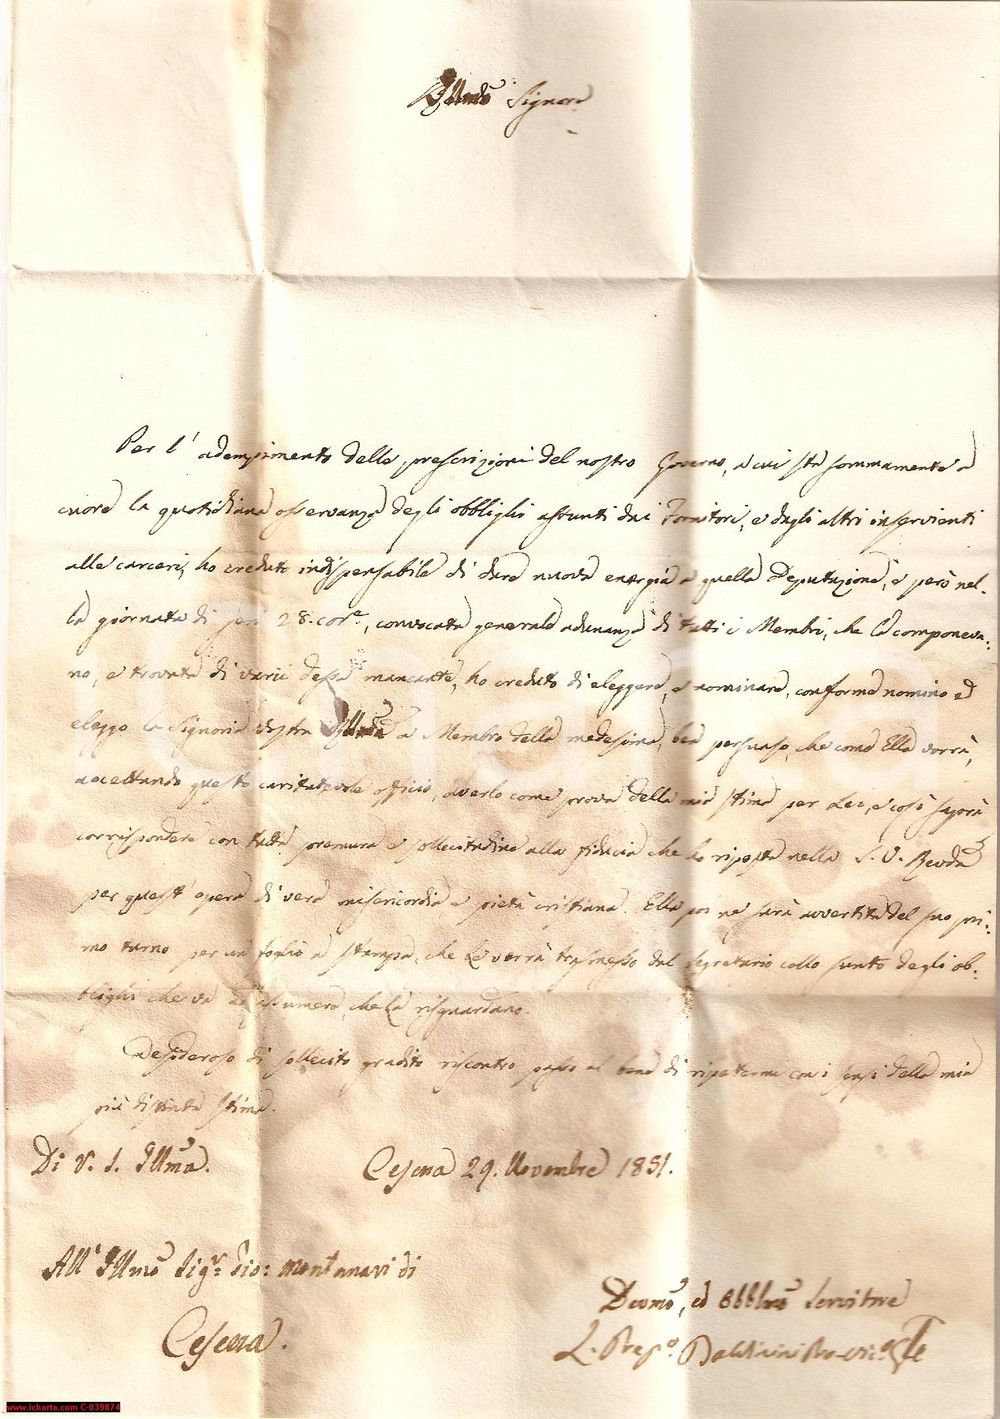 Illmo Signore
Per l' adempimento delle prescrizioni del nostro Governo, a cui sta sommamente a
cuore la quotidiana osservanza degli obblighi assunti dai Fornitori, e dagli altri inservienti
alle carceri, ho creduto indispensabile di dare nuova energia a quella Deputazione, e però nel-
la giornata di jeri 28. corre., convocata generale adunanza di tutti i Membri, che la componeva-
no, e trovata di varii dessa mancante, ho creduto di eleggere, e nominare, conforme nomino ed
eleggo la Signoria Vostra Illma a Membro della medesima, ben persuaso, che come Ella vorrà,
accettando questo caritatevole officio, averlo come prova della mia stima per Lei, e così saprà
corrispondere con tutta premura e sollecitudine alla fiducia che ho riposta nella S. V.
per quest' opera di vera misericordia e pietà cristiana. Ella poi ne sarà avvertita del suo pri-
mo turno per un foglio a stampa, che Le verrà trasmesso dal Segretario collo sunto degli ob-
blighi che va ad assumere, che La risguardano.
Desideroso di sollecito gradito riscontro passo al bene di ripetermi con i sensi della mia
più distinta stima.
Di V. S. Illma.
Cesena 29. Novembre 1851.
All' Illmo Sigr. Gio: Montanari di
Cesena.
Devmo, ed Obblmo Servitore
Baldinini Pro-Vico.
www.icharta.com C-039874